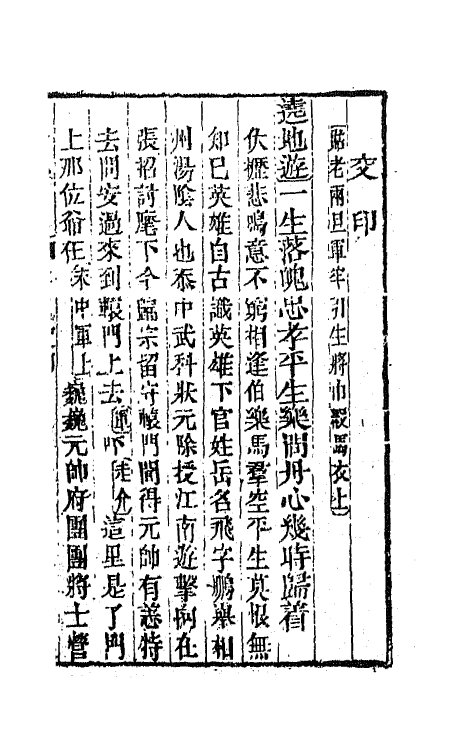 交印
䣋老兩旦軍牢引生將巾殺馬衣上
遶地遊一生落魄忠孝平生樂問丹心幾時歸着
伏櫪悲鳴意不窮相逢伯樂馬羣空平生莫恨無
知巳英雄自古識英雄下官姓岳名飛字鵬舉相
州湯陰人也忝中武科狀元除授江南遊擊例在
張招討麾下今歸宗留守轅門聞得元帥有恙特
去問安過來到轅門上去下這里是了門
上那位爺在中軍上巍巍元帥府團團將士營